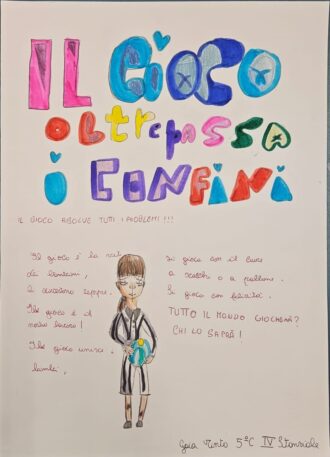 IL GIOCO
OLTREPASSA
I CONFINI
IL GIOCO RISOLVE TUTTI I PROBLEMI !!!
Il gioco è la
dei bambini,
Il gioco è il
nostro lavoro!
Il gioco unisce i
bambini,
si gioca con il cuore
a scacchi o a pallone.
Si gioca con felicità.
TUTTO IL MONDO GIOCHERÀ?
CHI LO SAPRÀ!
Gaia 5°C IV Stanziale